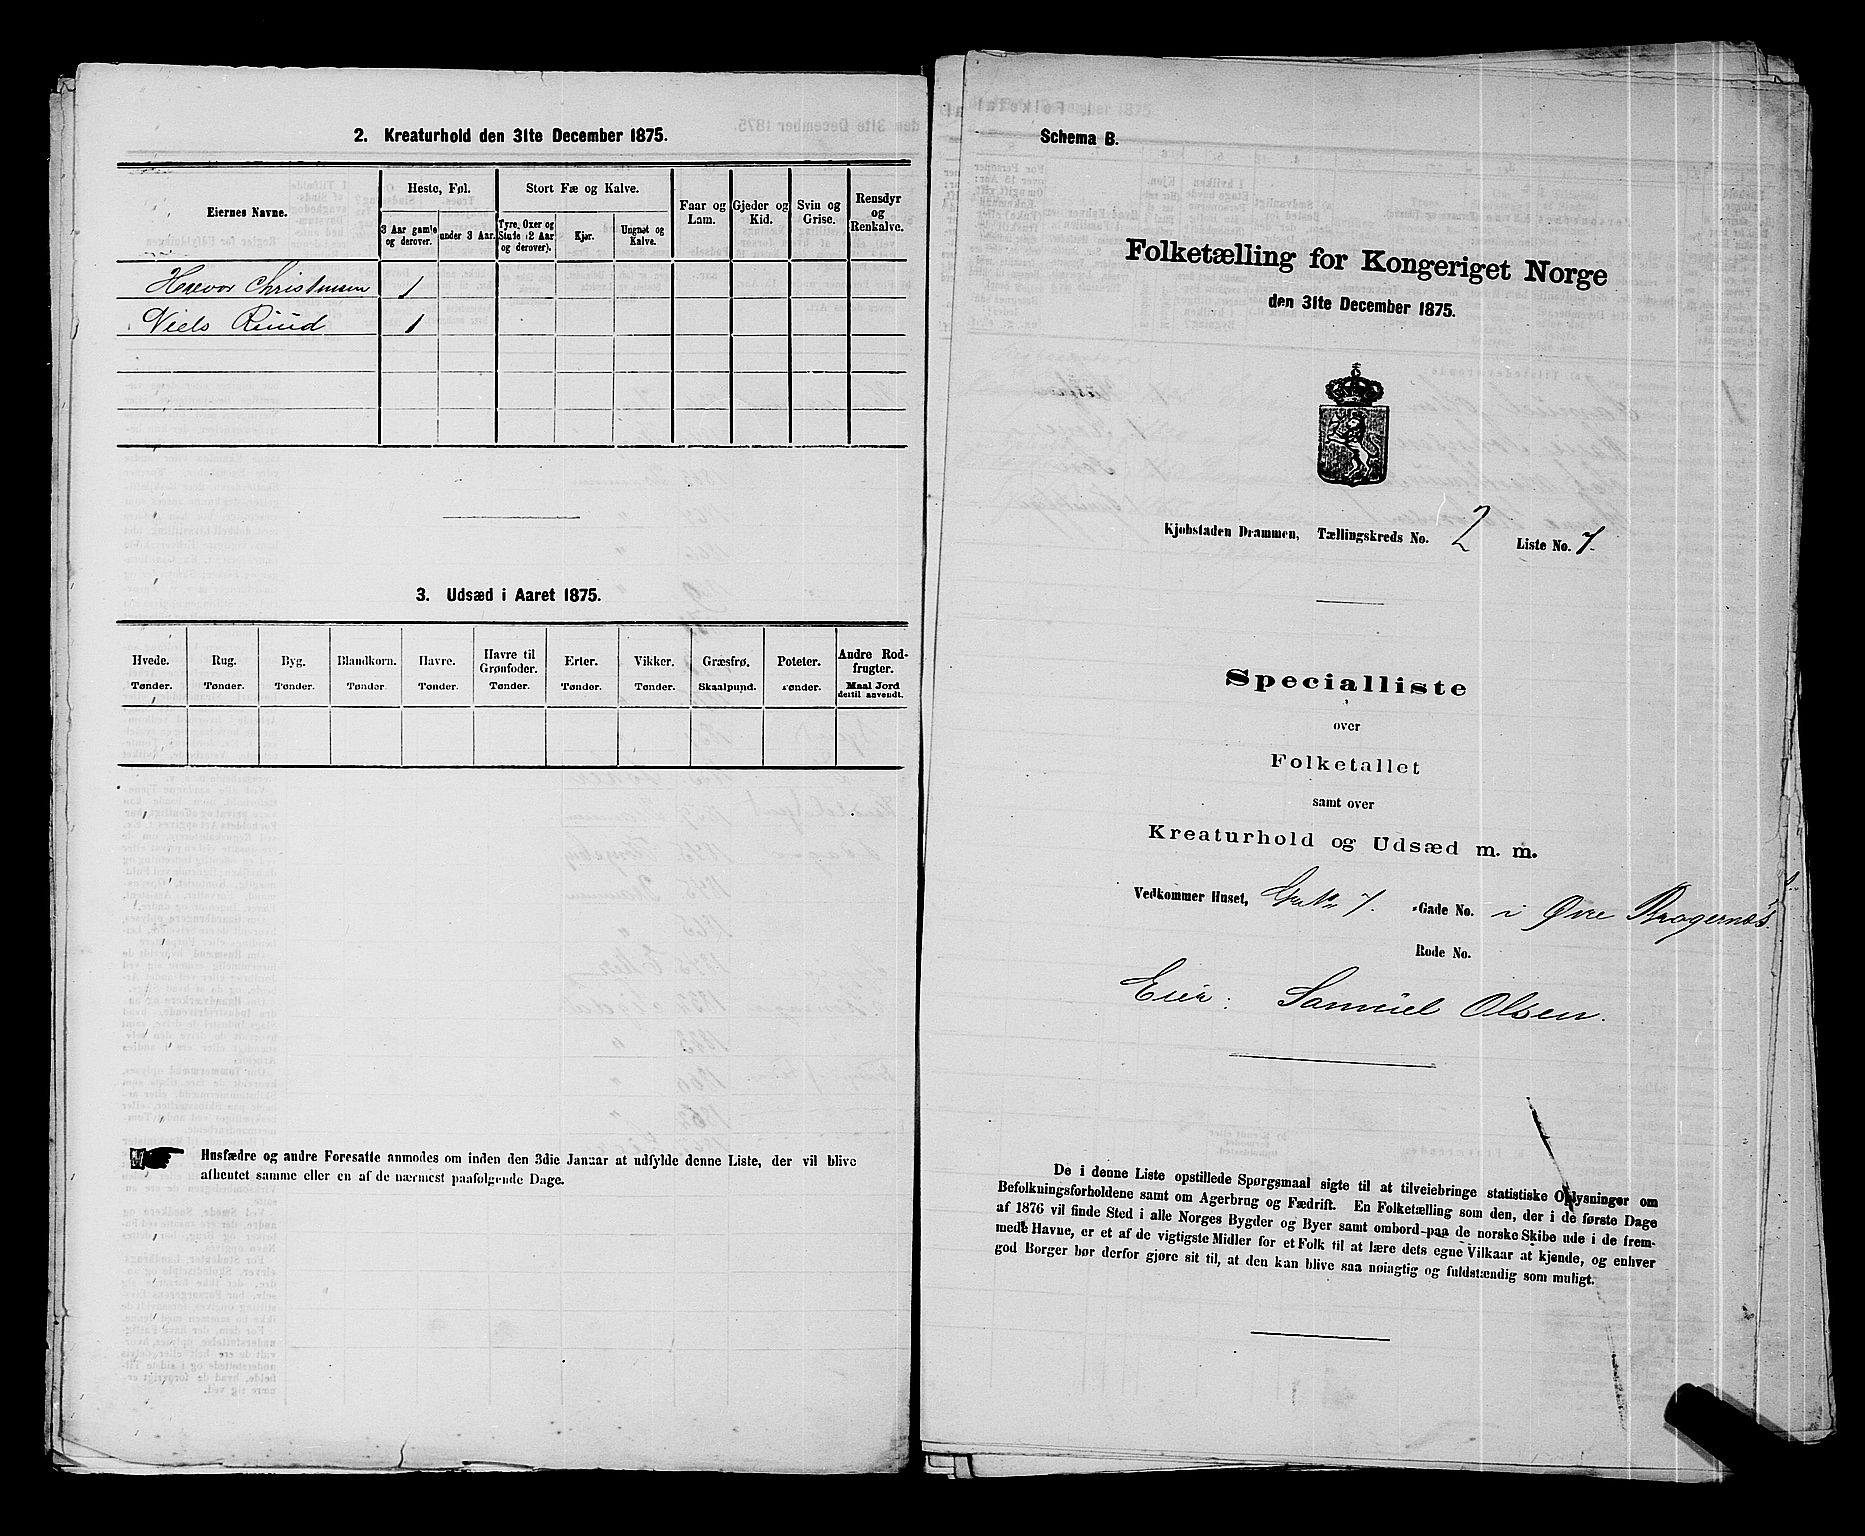 2. Kreaturhold den 31te December 1875.
Eiernes Navne.
Heste, Føl.
Stort Fæ og Kalve.
Faar og Lam.
Gjeder og Kid.
Svin og Grise.
Rensdyr og Renkalve.
3 Aar gamle og derover.
under 3 Aar.
Tyre, Oxer og Stude (2 Aar og derover).
Kjør.
Ungnøt og Kalve.
Christensen 1
Niels Ruud 1
3. Udsæd i Aaret 1875.
Hvede. Rug. Byg. Blandkorn. Havre. Havre til Grønfoder. Erter. Vikker. Græsfrø. Poteter. Andre Rodfrugter.
Tønder. Tønder. Tønder. Tønder. Tønder. Tønder. Tønder. Tønder. Skaalpund. Tønder. Maal Jord dertil anvendt.
Husfædre og andre Foresatte anmodes om inden den 3die Januar at udfylde denne Liste, der vil blive
afhentet samme eller en af de nærmest paafølgende Dage.
Schema B.
Folketælling for Kongeriget Norge
den 31te December 1875.
Kjøbstaden Drammen, Tællingskreds No. 2 Liste No. 7
Specialliste
over
Folketallet
samt over
Kreaturhold og Udsæd m. m.
Vedkommer Huset, Gr. No 7. -Gade No. i Øvre Bragernæs.
Rode No.
Eier: Samuel Olsen.
De i denne Liste opstillede Spørgsmaal sigte til at tilveiebringe statistiske Oplysninger om
Befolkningsforholdene samt om Agerbrug og Fædrift. En Folketælling som den, der i de første Dage
af 1876 vil finde Sted i alle Norges Bygder og Byer samt ombord paa de norske Skibe ude i de frem-
mede Havne, er et af de vigtigste Midler for et Folk til at lære dets egne Vilkaar at kjende, og enhver
god Borger bør derfor gjøre sit til, at den kan blive saa nøiagtig og fuldstændig som muligt.